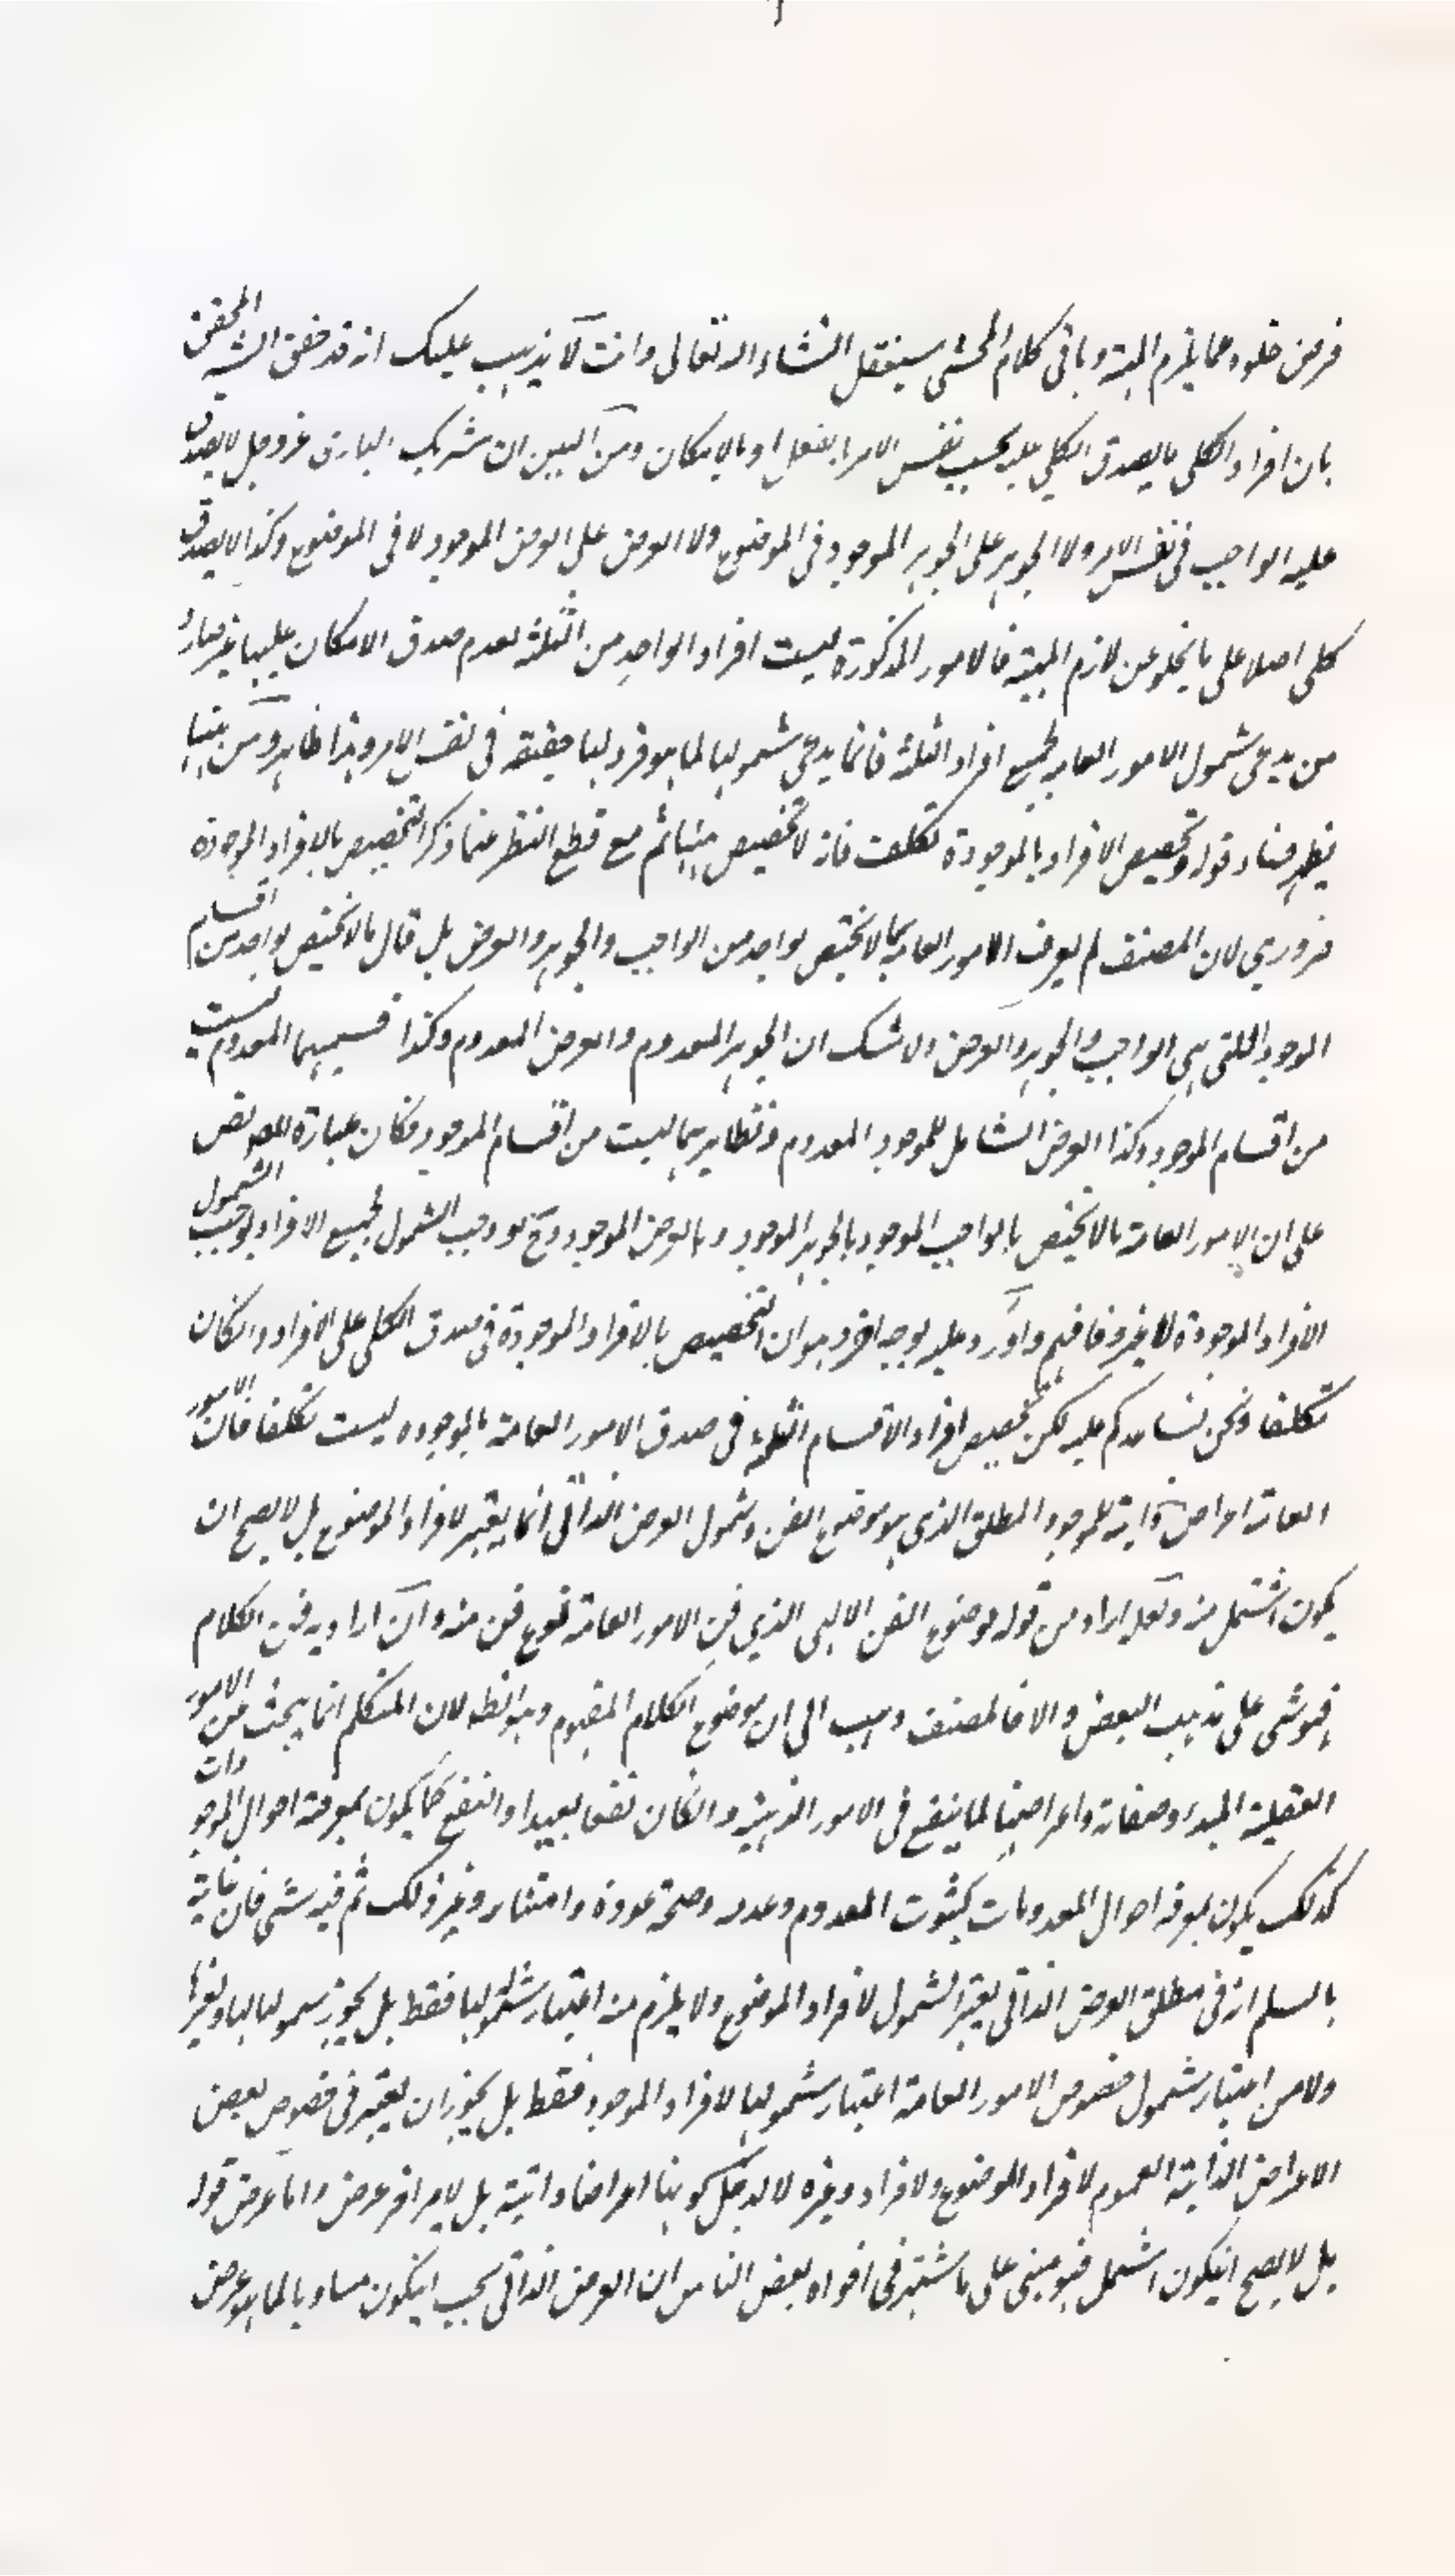 فرض خلوه عما يلزم المهية وباقى كلام المحشى سينقل انشاء الله تعالى وانت لا يذهب عليك انه قد حقق الش المحقق
بان افراد الكلى ما يصدق الكلى عليه بحسب نفس الامر بالفعل او بالامكان ومن البين ان شريك البارى عز وجل لا يصدق
عليه الواجب فى نفس الامر ولا الجوهر على الجوهر الموجود فى الموضوع ولا العرض على العرض الموجود لا فى الموضوع وكذا لا يصدق
كلى اصلا على ما يخلو عن لازم المهية فالامور المذكورة ليست افراد الواحد من الثلثة لعدم صدق الامكان عليها
من يدعى شمول الامور العامة لجميع افراد الثلثة فانما يدعى شمولها لما هو فرد لها حقيقة فى نفس الامر وهذا ظاهر ومن ههنا
يظهر فساد قوله وتخصيص الافراد بالموجودة تكلف فانه لا تخصيص ههنا ثم مع قطع النظر عما ذكر التخصيص بالافراد الموجودة
ضرورى لان المصنف لم يعرف الامور العامة بما لا يختص بواحد من الواجب والجوهر والعرض بل قال ما لا يختص بواحد من اقسام
الموجود اللتى هى الواجب والجوهر والعرض ولا شك ان الجوهر المعدوم والعرض المعدوم وكذا قسميهما المعدوم ليست
من اقسام الموجود وكذا العرض الشامل للموجود المعدوم ونظايرهما ليست من اقسام الموجود فكان عبارة المص نص
على ان الامور العامة ما لا يختص بالواجب الموجود بالجوهر الموجود وبالعرض الموجود وح لو وجب الشمول لجميع الافراد لوجب الشمول
الافراد الموجودة لا غير فافهم واورد عليه بوجه اخر وهو ان التخصيص بالافراد الموجودة فى صدق الكلى على الافراد وانكان
تكلفا ونحن نساعدكم عليه لكن تخصيص افراد الاقسام الثلثة فى صدق الامور العامة بالموجوده ليست تكلفا فان الامور
العامة اعراض ذاتية للموجود المطلق الذى هو موضوع الفن وشمول العرض الذاتى انما يعتبر لافراد الموضوع بل لا يصح ان
يكون اشتمل منه ولعله اراد من قوله موضوع الفن الالهى الذى فن الامور العامة نوع فن منه وان اراد به فن الكلام
فهو شى على مذهب البعض والا فالمصنف ذهب الى ان موضوع الكلام المفهوم وهو الظ لان المتكلم انما يبحث عن الامور
العقيلة المبدا وصفاته واعراضها لما ينفع فى الامور الذهنية وانكان نفعا بعيدا والنفع كما يكون بمعرفة احوال الموجودات
كذلك يكون بمعرفه احوال المعدومات كثبوت المعدوم وعدمه وصحة عوده وامتناعه وغير ذلك ثم فيه شى فان غاية
ما لسلم انه فى مطلق العرض الذاتى يعتبر الشمول لافراد الموضوع ولا يلزم منه اعتبار شمولها فقط بل يجوز شمولها لها ولغيرها
ولا من اعتبار شمول خصوص الامور العامة اعتبار شمولها لافراد الموجود فقط بل يجوز ان يعتبر فى خصوص بعض
الاعراض الذاتية العموم لافراد الموضوع ولافراد وغيره لا لدخل كونها اعراضا ذاتية بل لامر اخر عرض واما عرض قوله
بل لا يصح انيكون اشمل فهو مبنى على ما اشتهر فى افواه بعض الناس ان العرض الذاتى يجب انيكون مساويا لما هو عرض